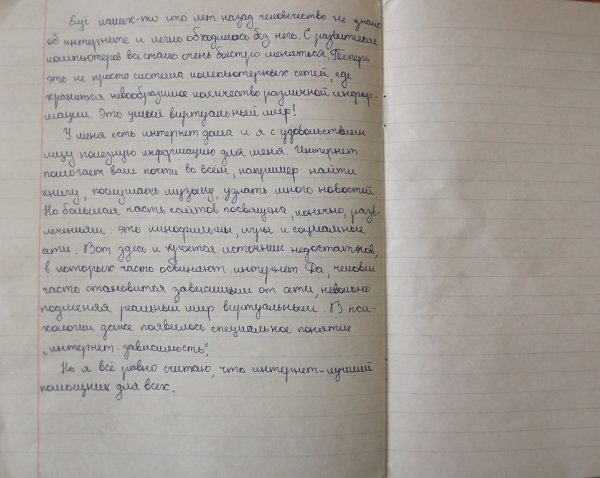 Ещё каких-то сто лет назад человечество не знало
об интернете и легко обходилось без него. С развитием
компьютеров всё стало очень быстро меняться. Теперь
это не просто система компьютерных сетей, где
хранится невообразимое количество различной инфор-
мации. Это целый виртуальный мир!
У меня есть интернет дома и я с удовольствием
ищу полезную информацию для меня. Интернет
помогает вам почти во всём, например: найти
книгу, послушать музыку, узнать много новостей.
Но большая часть сайтов посвящена, конечно, разв-
лечениям: это кинофильмы, игры и социальные
сети. Вот здесь и кроется источник недостатков,
в которых часто обвиняют интернет. Да, человек
часто становится зависимым от сети, невольно
подменяя реальный мир виртуальным. В пси-
хологии даже появилось специальное понятие
„интернет-зависимость".
Но я всё равно считаю, что интернет-лучший
помощник для всех.